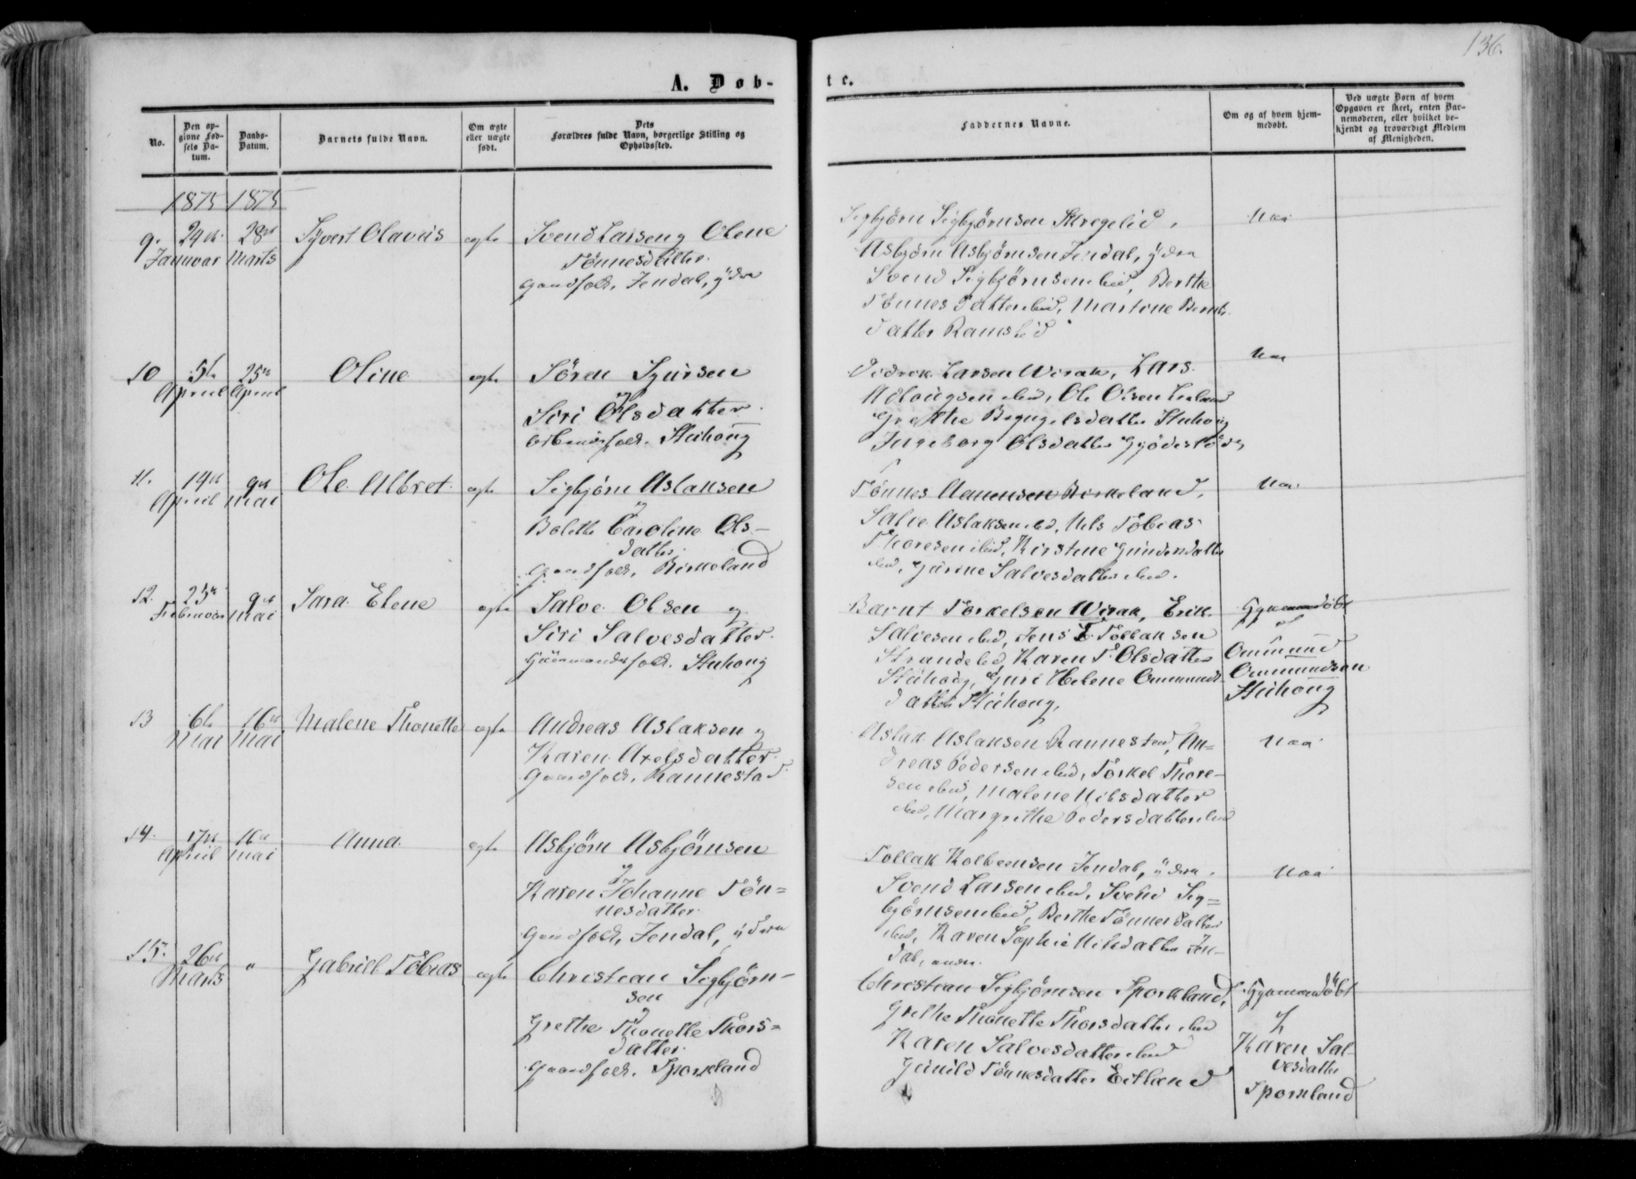 136.
A. Døb-
te.
No.
Den op-
givne Fød-
sels Da-
tum.
Daabs-
Datum.
Barnets fulde Navn.
Om ægte
eller uægte
født.
Dets
Forældres fulde Navn, borgerlige Stilling og
Opholdssted.
Faddernes Navne.
Om og af hvem hjem-
medøbt.
Ved uægte Børn af hvem
Opgaven er skeet, enten Bar-
nemoderen, eller hvilket be-
kjendt og troværdigt Medlem
af Menigheden.
1875 1875
9. 24de Januar
28de Marts
Syvert Olavus
ægte
Svend Larsen og Olene
Tønnesdatter
Gaardfolk, Jendal, ydre
Sigbjørn Sigbjørnsen Skregelid,
Asbjørn Asbjørnsen Jendal, ydre
Svend Sigbjørnsen ibid, Berthe
Tønnes Datter ibid, Martone Bernts
datter Ramslid
Naa
10 5te April
25de April
Oline
ægte
Søren Sjursen
og
Siri Olsdatter
Stuhoug
Larsen Wirak, Lars
ibid, Ole Olsen
Grethe Stuhoug
Ingeborg Olsdatter
Naa
11. 14de April
9de Mai
Ole Albret
ægte
Sigbjørn Aslaksen
og
Bolette Caroline Ols-
datter
Gaardfolk, Birkeland
Tønnes Aanensen Birkeland,
Salve Aslaksen ibid, Nils Tobias
Thoresen ibid, Kirstine Gundersdatter
ibid, Gurine Salvesdatter ibid.
Naa
12. 25de Februar
9de Mai
Sara Elene
ægte
Salve Olsen og
Siri Salvesdatter
Huusmandsfolk. Stuhoug
Bernt Torkelsen Wirak, Erik
Salvesen ibid, Jens T. Tollaksen
Strandelid, Karen T. Olsdatter
Stuhoug, Guri Helene Ommunds-
datter Stuhoug,
Hjemmedøbt
af
Ommund
Ommundsen
Stuhoug
13 6te Mai
16de Mai
Malene Thonette
ægte
Andreas Aslaksen og
Karen Axelsdatter
Gaardfolk, Rannestad
Aslak Aslaksen Rannestad, An-
dreas Pedersen ibid, Torkel Thore-
sen ibid, Malene Nilsdatter
ibid, Margrethe Pedersdatter ibid
Naa
14. 17de April
16de Mai
Anna
ægte
Asbjørn Asbjørnsen
og
Karen Johanne Tøn-
nesdatter
Gaardfolk, Jendal, ydre
Tollak Kolbeensen Jendal, ydre,
Svend Larsen ibid, Svend Sig-
bjørnsen ibid, Berthe Tønnesdatter
ibid, Karen Sophie Nilsdatter Jen-
dal,
Naa
15. 26de Marts
"
Gabriel Tobias
ægte
Christian Sigbjørn-
sen
og
Grethe Thonette Thors-
datter
Gaardfolk. Sporkland
Christian Sigbjørnsen Sporkland,
Grethe Thonette Thorsdatter ibid
Karen Salvesdatter ibid
Gunild Tønnesdatter Eitland
Hjemmedøbt
af
Karen Sal-
vesdatter
Sporkland